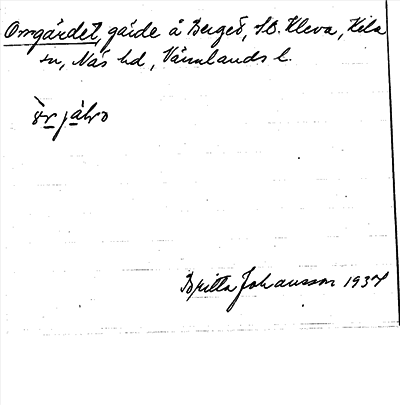 Omgärdet, gärde å Berged, St. Kleva, Kila
sn, Näs hd, Värmlands l.
Britta Johansson 1937